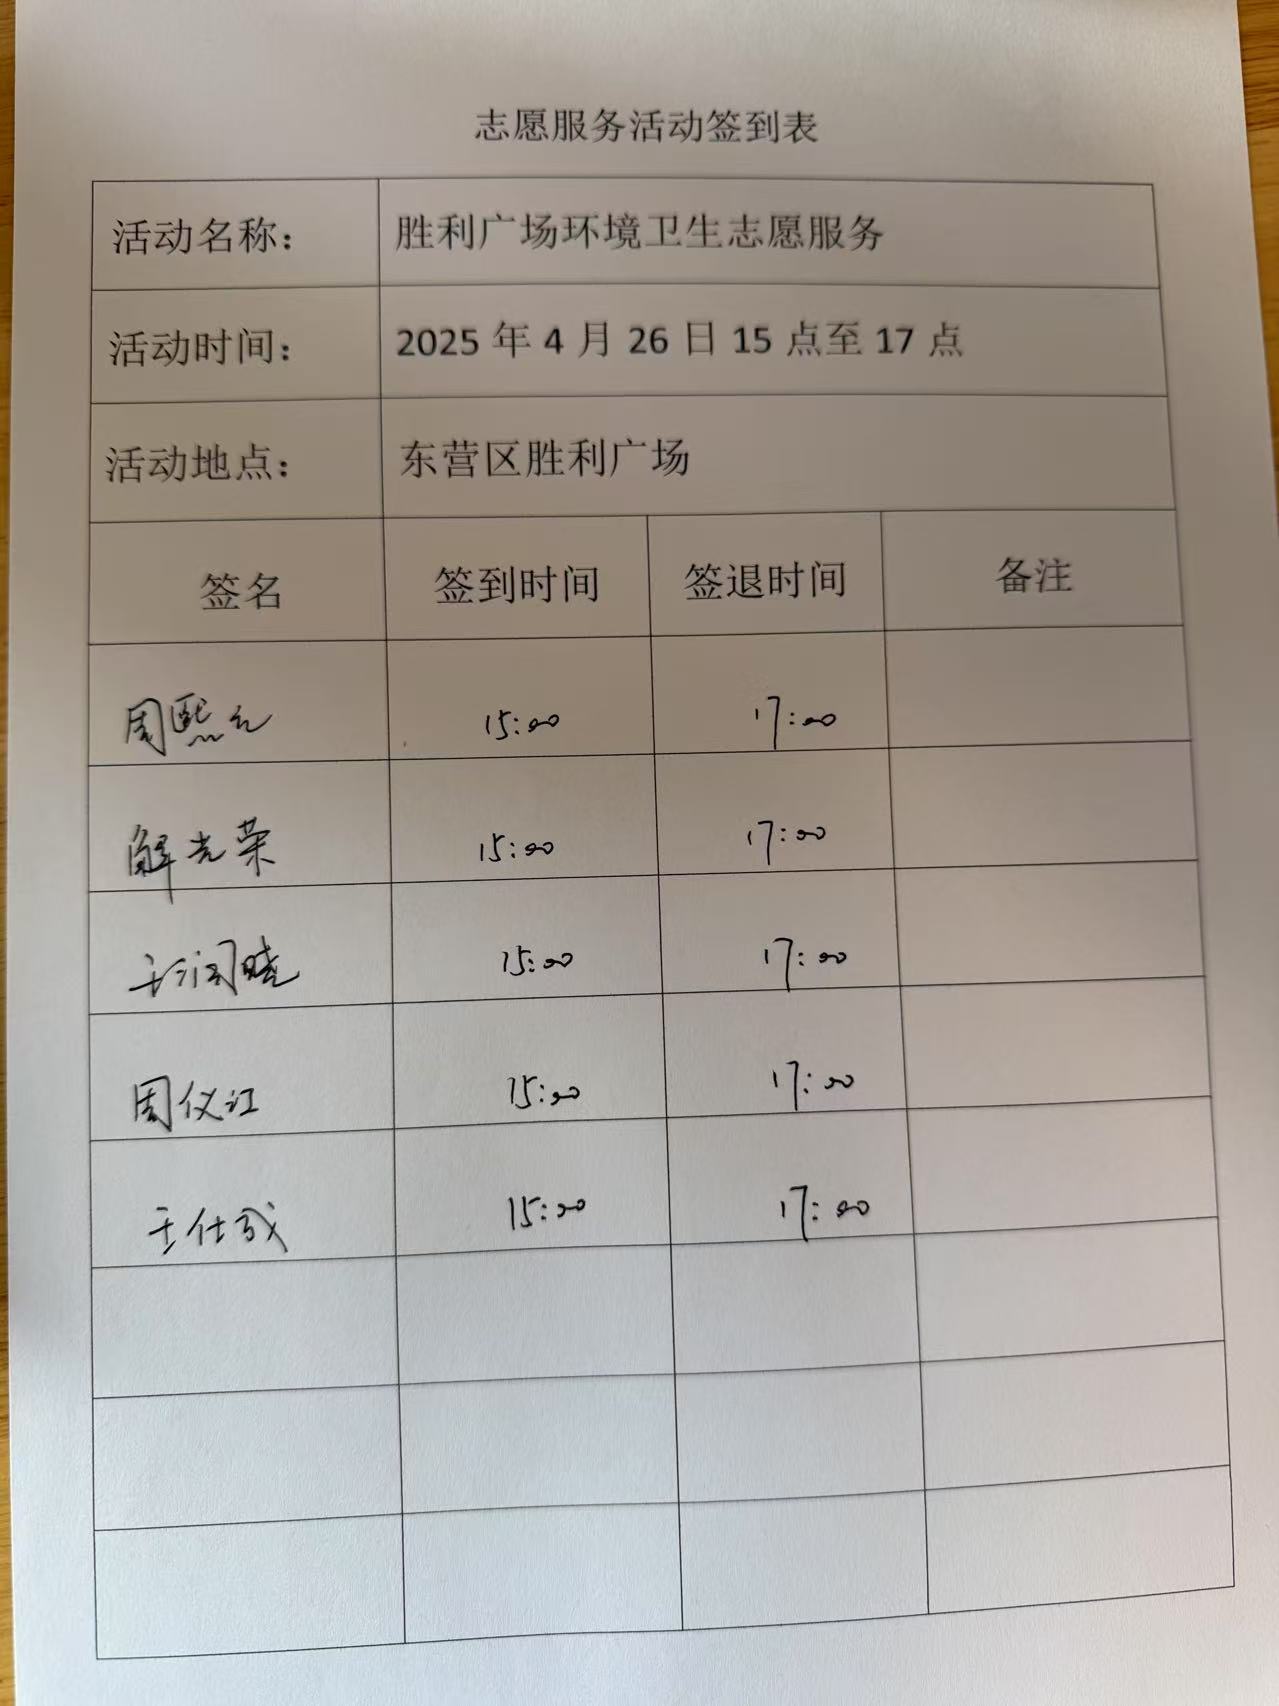 志愿服务活动签到表
活动名称： 胜利广场环境卫生志愿服务
活动时间： 2025 年 4 月 26 日 15 点至 17 点
活动地点： 东营区胜利广场
签名 签到时间 签退时间 备注
周熙 15:00 17:00
解光荣 15:00 17:00
王润晓 15:00 17:00
周仪江 15:00 17:00
王仕成 15:00 17:00